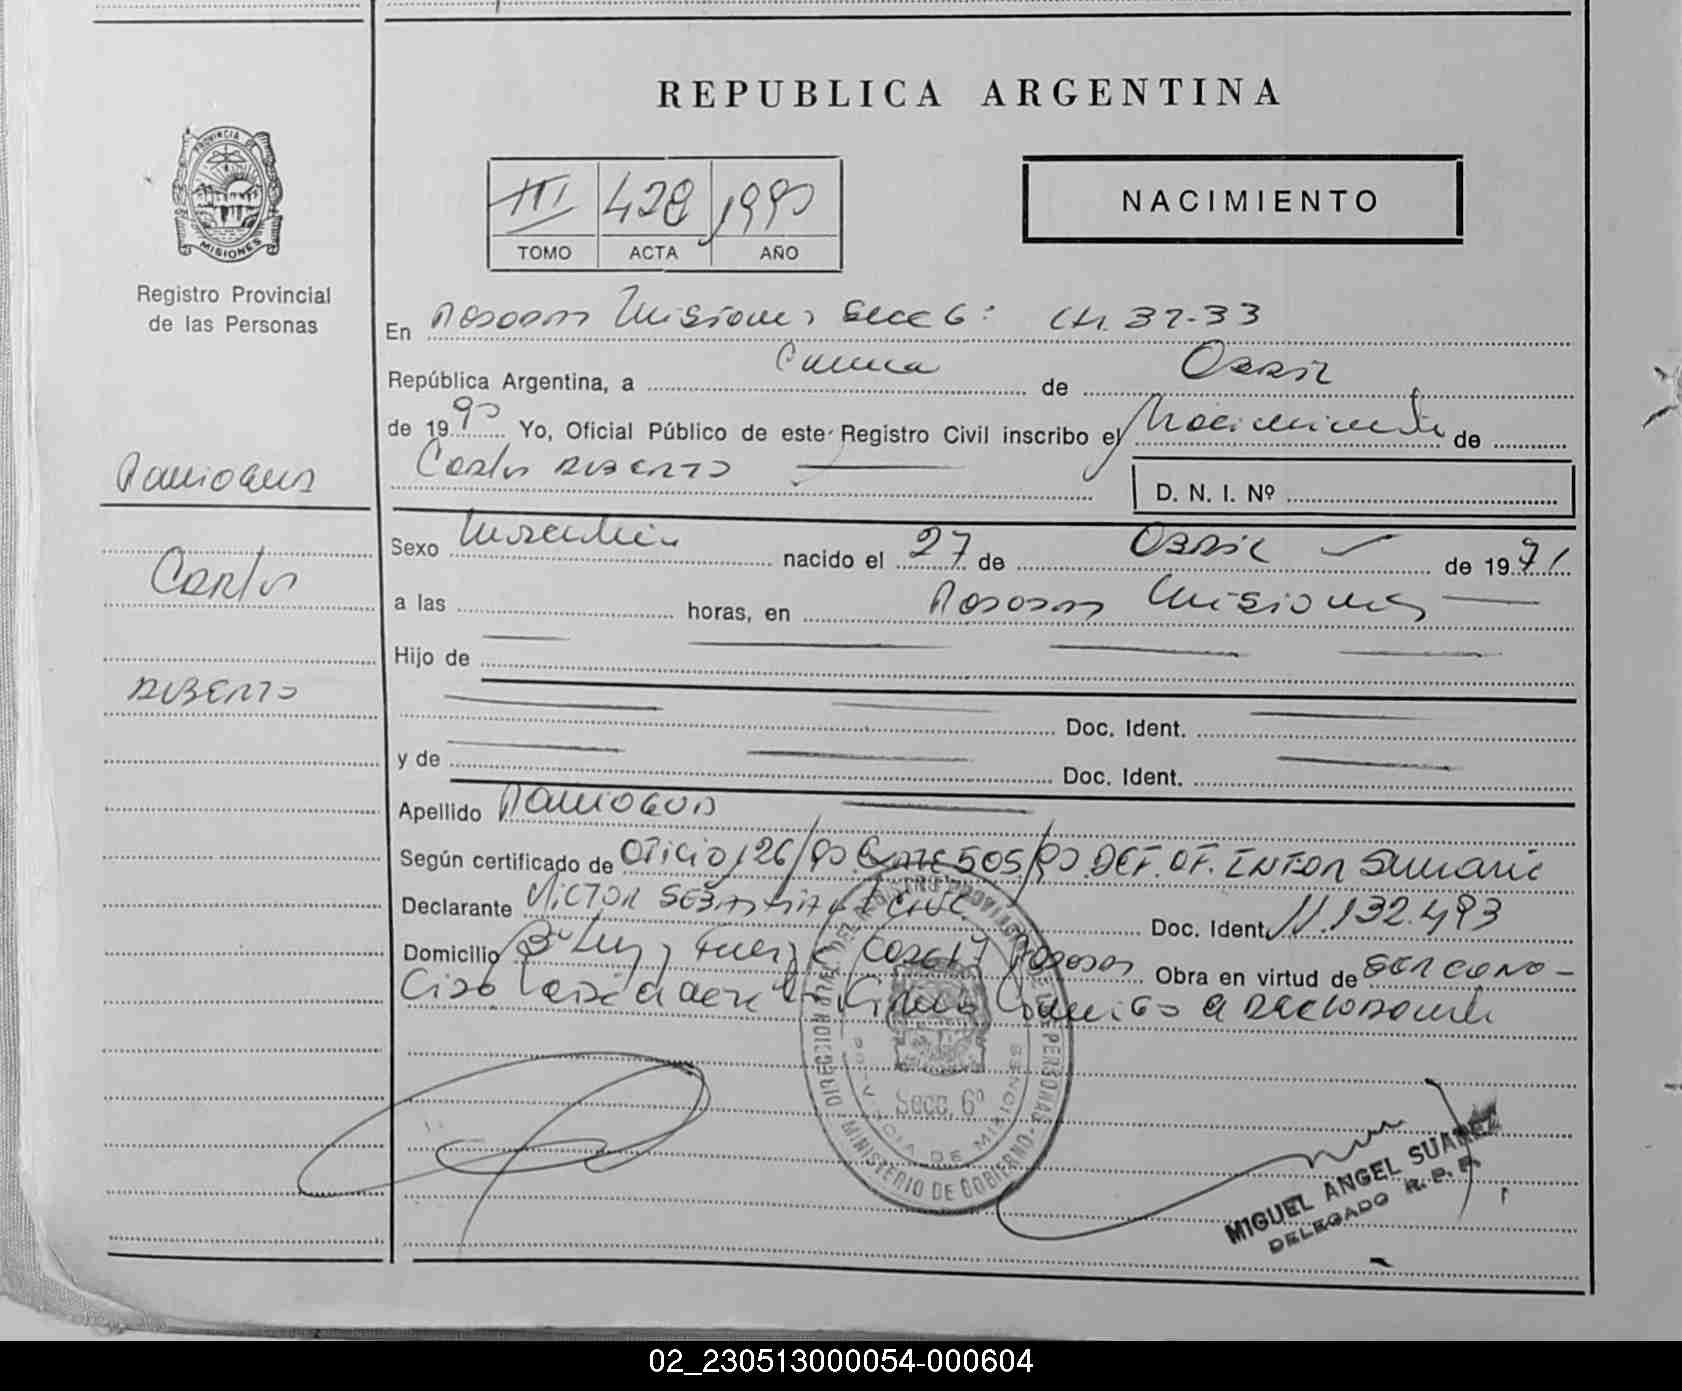 REPUBLICA ARGENTINA
PROVINCIA DE
MISIONES
Registro Provincial
de las Personas
III 428 1990
TOMO ACTA AÑO
NACIMIENTO
En Posadas Misiones Secc 6: Ch. 32-33
República Argentina, a de Abril
de 1990 Yo, Oficial Público de este Registro Civil inscribo el Nacimiento de
Carlos Alberto
D. N. I. Nº
Carlos
Alberto
Sexo Masculino nacido el 27 de Abril de 1971
a las horas, en Posadas Misiones
Hijo de
Doc. Ident.
y de Doc. Ident.
Apellido
Según certificado de Oficio 126/90 505/90 DEF. OF. INFOR Sumaria
Declarante VICTOR SEBASTIAN Doc. Ident. 11.132.493
Domicilio Bº Luz y Fuerza Casa 17 Posadas Obra en virtud de SER CONO-
Cido firma Conmigo el declarante
DIRECCION GRAL. DEL REGISTRO PROVINCIAL DE LAS PERSONAS
MINISTERIO DE GOBIERNO
PROVINCIA DE MISIONES
Secc. 6ª
MIGUEL ANGEL SUAREZ
DELEGADO R.P.P.
02_230513000054-000604